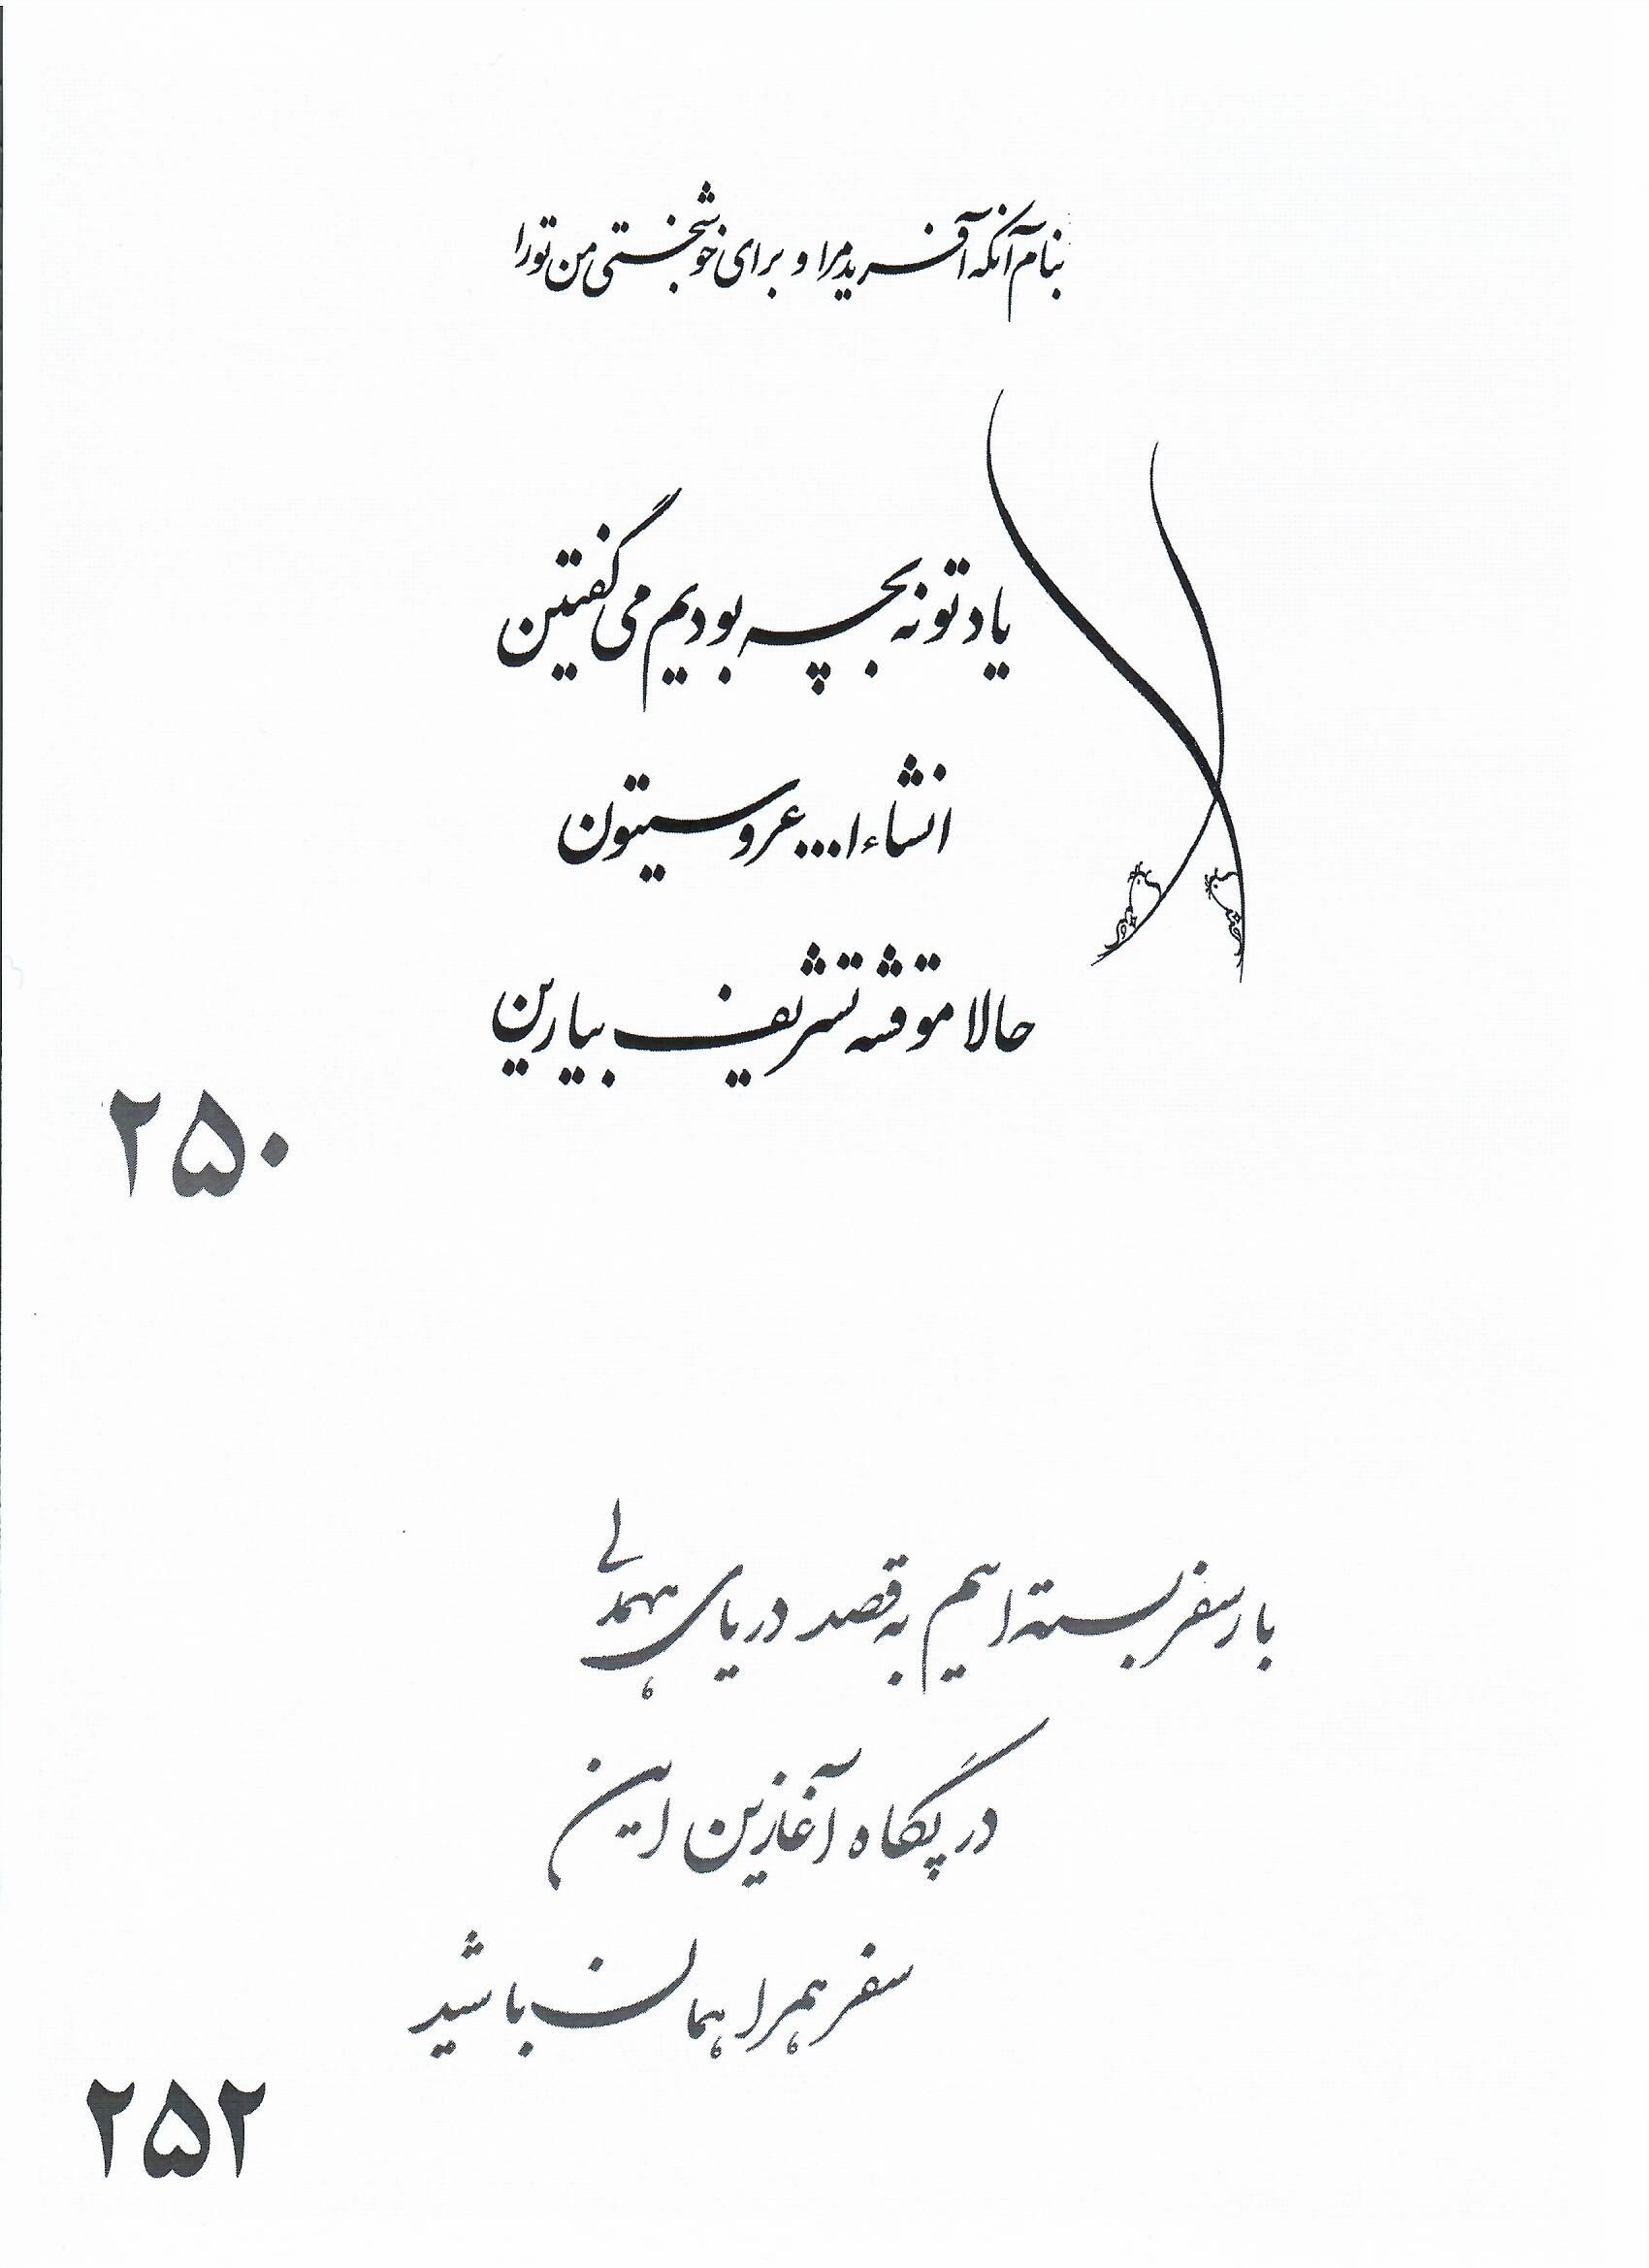 بنام آنکه آفرید مرا و برای خوشبختی من تو را
یادتونه بچه بودیم می گفتین
انشاءا... عروسیتون
حالا موقشه تشریف بیارین
۲۵۰
بار سفر بسته ایم به قصد دریای همدلی
در پگاه آغازین این
سفر همراهمان باشید
۲۵۲